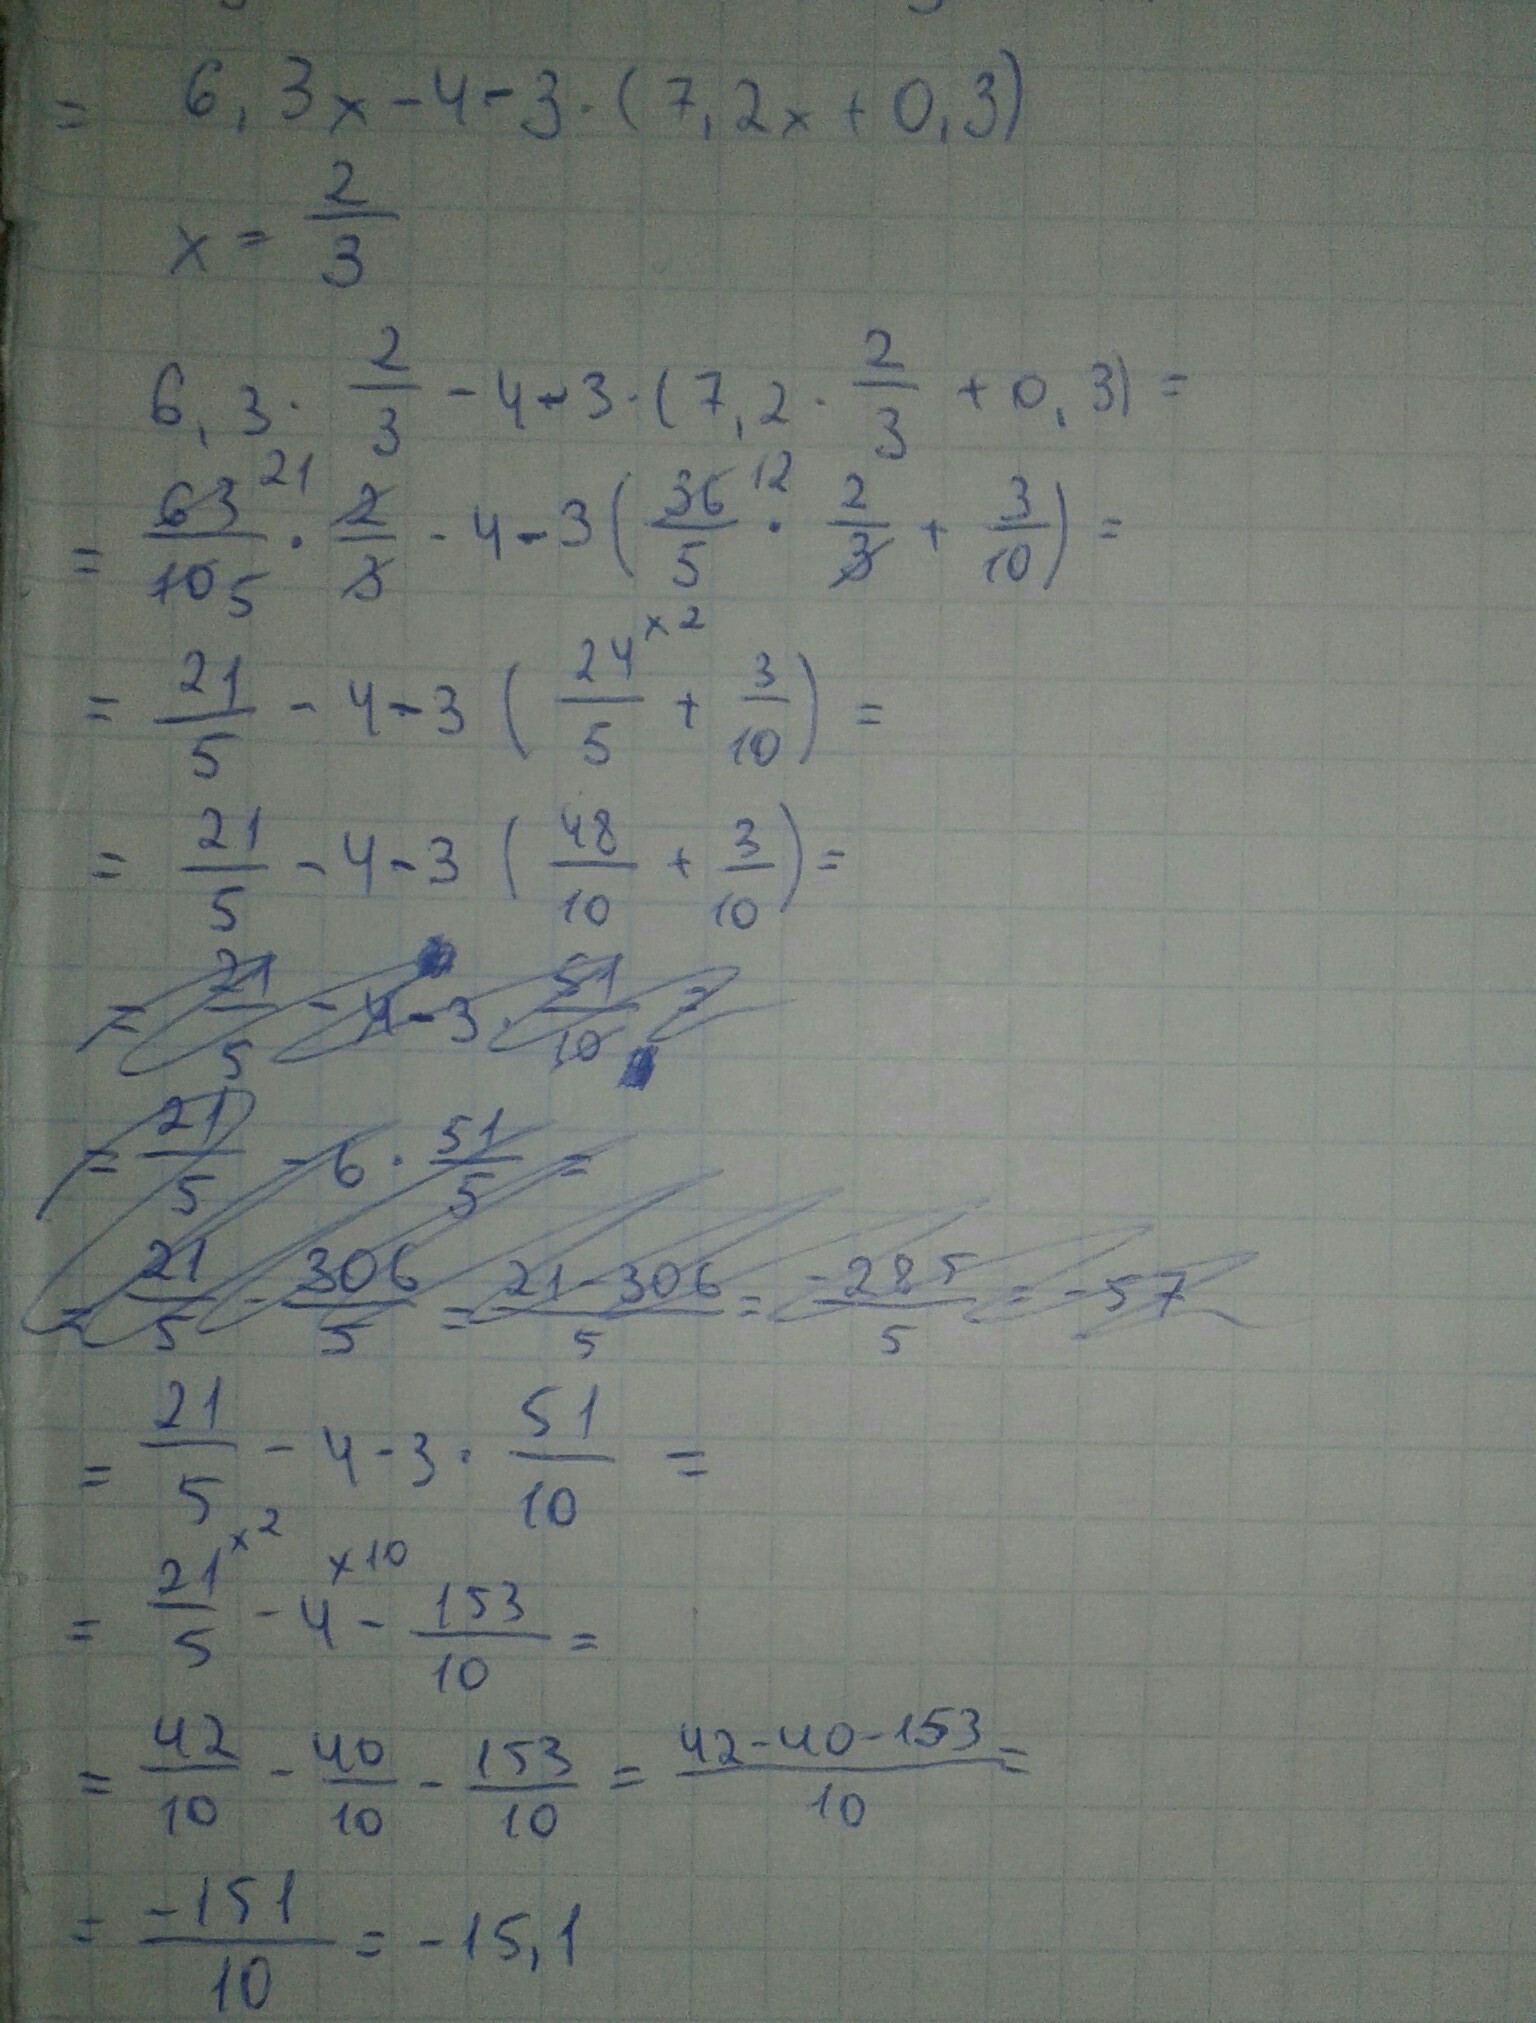 = 6,3x-4-3·(7,2x+0,3)
x = 2/3
6,3 · 2/3 - 4 - 3·(7,2 · 2/3 + 0,3) =
= 63/10 21 5 · 2/3 - 4 - 3(36/5 12 · 2/3 + 3/10) =
= 21/5 - 4 - 3 (24/5 x2 + 3/10) =
= 21/5 - 4 - 3 (48/10 + 3/10) =
= 21/5 - 4 - 3 · 51/10 =
= 21/5 - 6 · 51/5 =
= 21/5 - 306/5 = 21-306/5 = -285/5 = -57
= 21/5 - 4 - 3 · 51/10 =
= 21/5 x2 - 4 x10 - 153/10 =
= 42/10 - 40/10 - 153/10 = 42-40-153/10 =
= -151/10 = -15,1